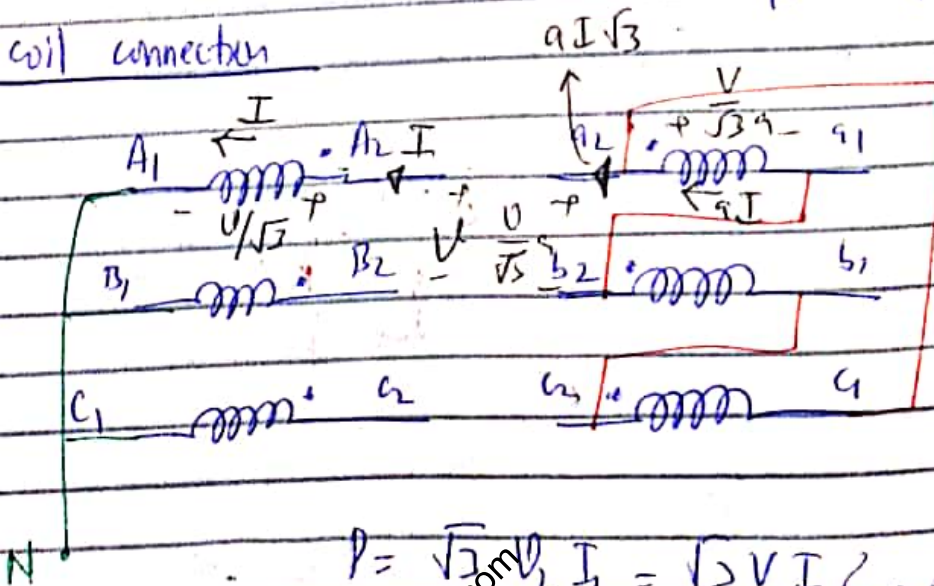 coil connection
aI√3
I
V/√3 a
A1 A2 I a2 + - a1
- V/√3 + + + aI
B1 B2 V - V/√3 a - b2 b1
C1 C2 C2 C1
N
P = √3 V, I, = √3 V I